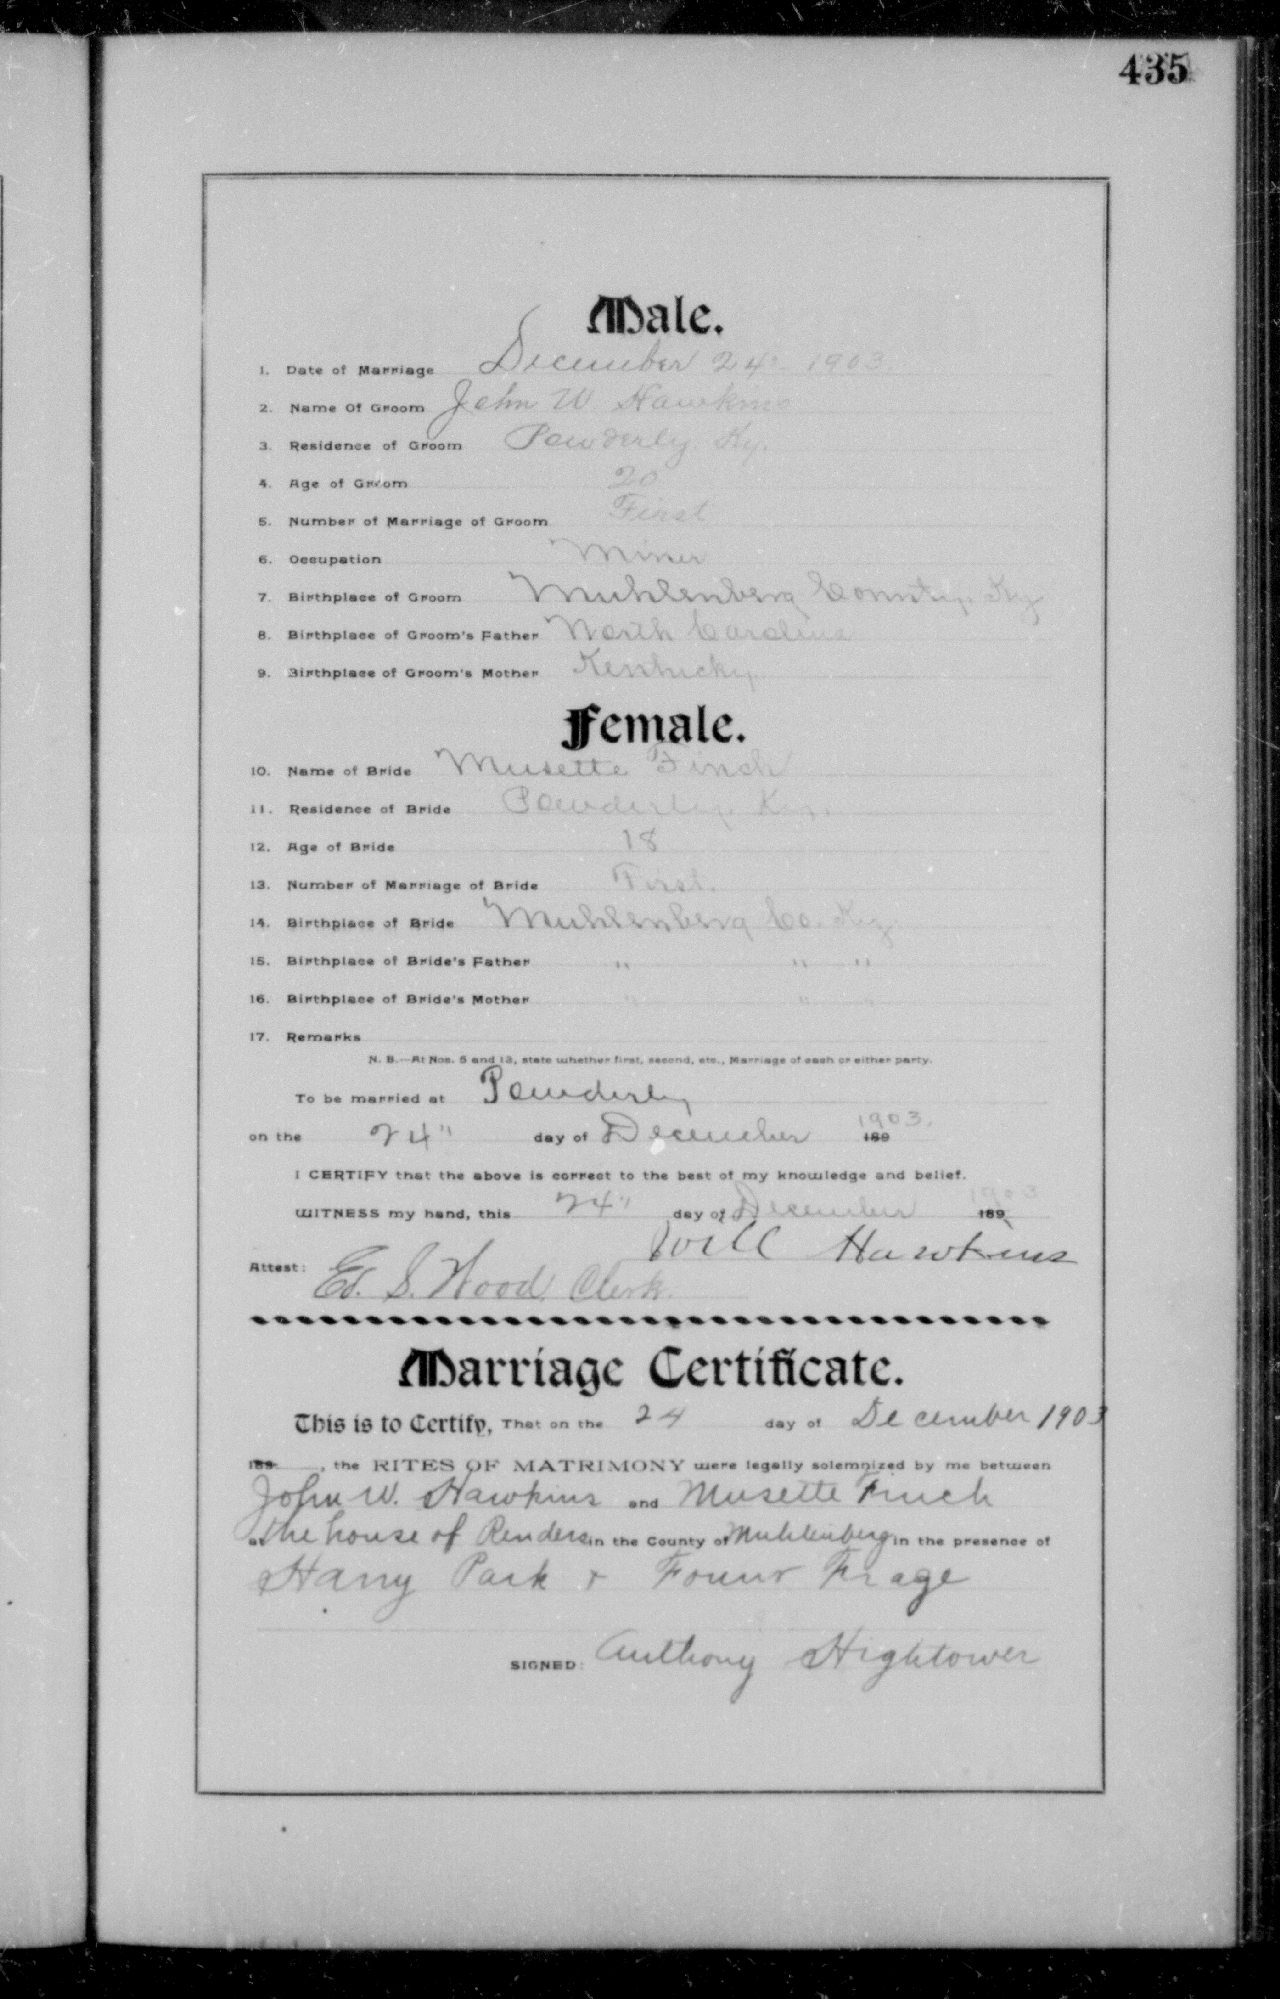 435
Male.
1. Date of Marriage December 24" 1903.
2. Name Of Groom John W. Hawkins
3. Residence of Groom Powderly Ky.
4. Age of Groom 20
5. Number of Marriage of Groom First
6. Occupation Miner
7. Birthplace of Groom Muhlenberg County Ky
8. Birthplace of Groom's Father North Carolina
9. Birthplace of Groom's Mother Kentucky
Female.
10. Name of Bride Musette Finch
11. Residence of Bride Powderly Ky.
12. Age of Bride 18
13. Number of Marriage of Bride First.
14. Birthplace of Bride Muhlenberg Co. Ky.
15. Birthplace of Bride's Father " " "
16. Birthplace of Bride's Mother " " "
17. Remarks
N. B.—At Nos. 5 and 13, state whether first, second, etc., Marriage of each or either party.
To be married at Powderly
on the 24" day of December 189 1903.
I CERTIFY that the above is correct to the best of my knowledge and belief.
WITNESS my hand, this 24" day of December 189 1903
Will Hawkins
Attest: Ed. S. Wood, Clerk.
Marriage Certificate.
This is to Certify, That on the 24 day of December 1903
189 , the RITES OF MATRIMONY were legally solemnized by me between
John W. Hawkins and Musette Finch
at the house of Renders in the County of Muhlenberg in the presence of
Harry Park &
SIGNED: Anthony Hightower